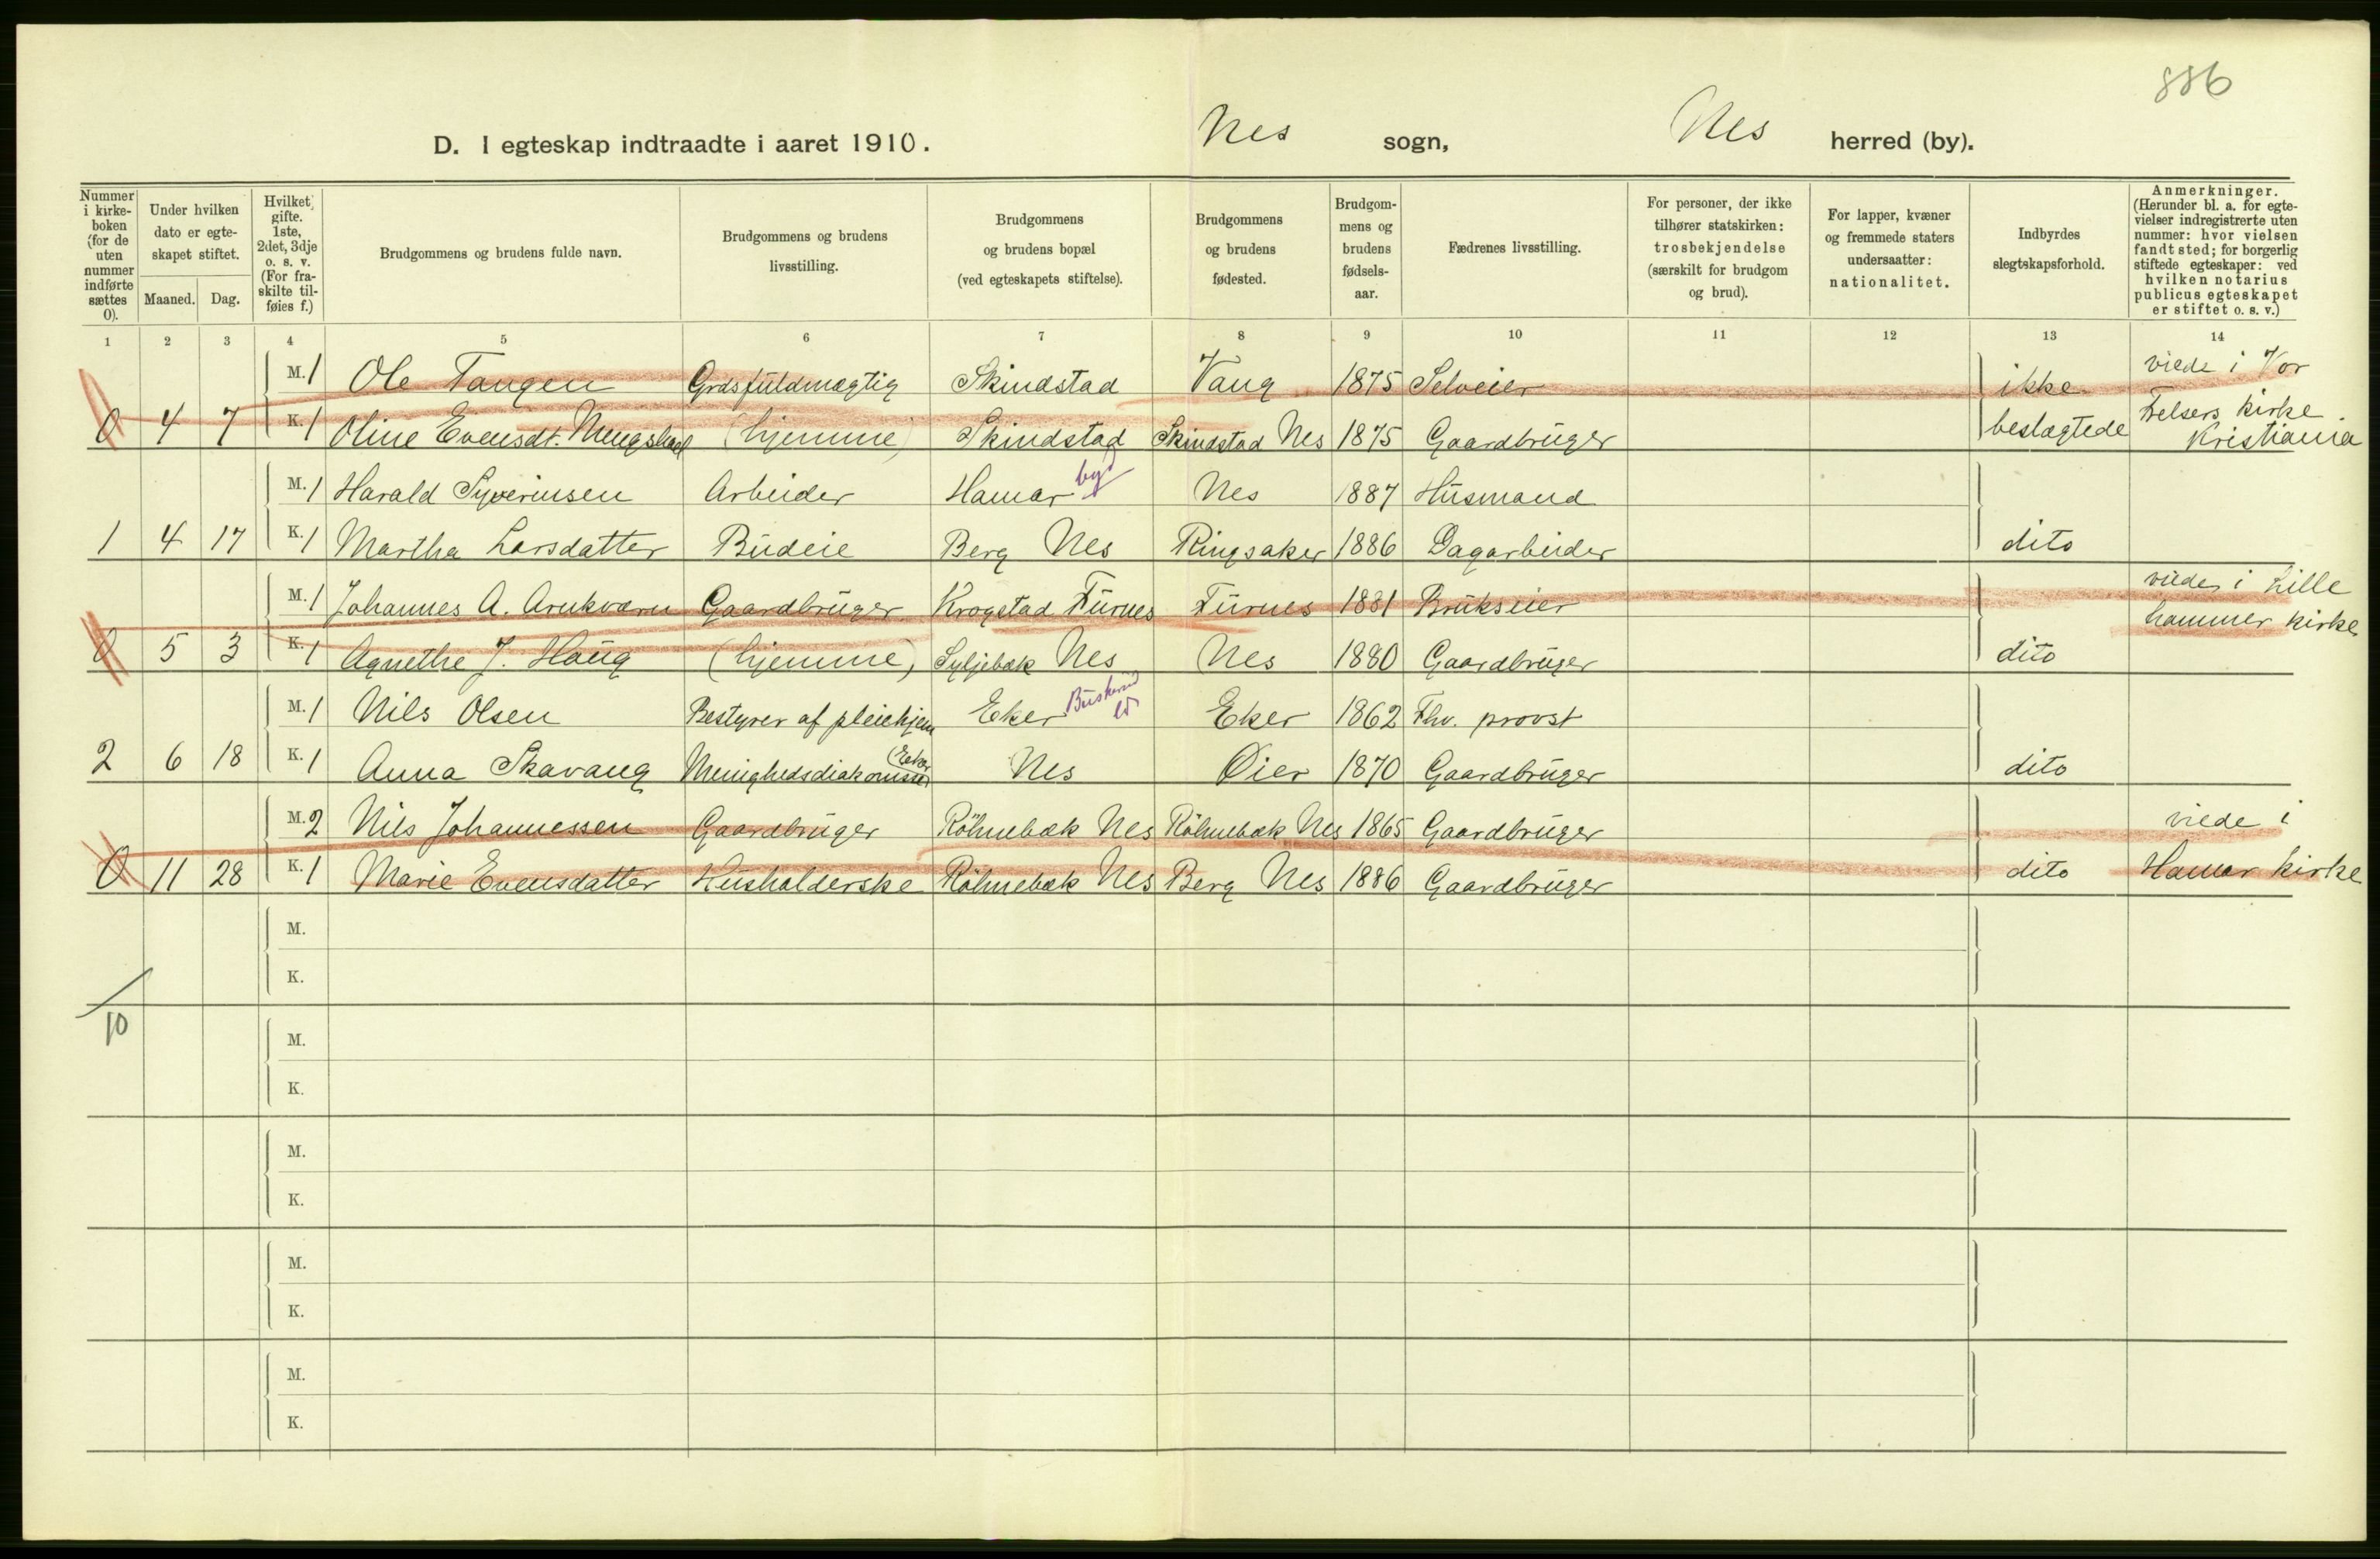 886
D. I egteskap indtraadte i aaret 1910. Nes sogn, Nes herred (by).
Nummer i kirkeboken (for de uten nummer indførte sættes 0).
Under hvilken dato er egteskapet stiftet.
Maaned. Dag.
Hvilket gifte. 1ste, 2det, 3dje o. s. v. (For fraskilte tilføies f.)
Brudgommens og brudens fulde navn.
Brudgommens og brudens livsstilling.
Brudgommens og brudens bopæl (ved egteskapets stiftelse).
Brudgommens og brudens fødested.
Brudgommens og brudens fødselsaar.
Fædrenes livsstilling.
For personer, der ikke tilhører statskirken: trosbekjendelse (særskilt for brudgom og brud).
For lapper, kvæner og fremmede staters undersaatter: nationalitet.
Indbyrdes slegtskapsforhold.
Anmerkninger. (Herunder bl. a. for egtevielser indregistrerte uten nummer: hvor vielsen fandt sted; for borgerlig stiftede egteskaper: ved hvilken notarius publicus egteskapet er stiftet o. s. v.)
1 2 3 4 5 6 7 8 9 10 11 12 13 14
M. 1 Ole Tangen Grdsfuldmægtig Skindstad Vang 1875 Selveier ikke viede i Vor
0 4 7 K. 1 Oline Evensdt. Mengshoel (hjemme) Skindstad Skindstad Nes 1875 Gaardbruger beslægtede Frelsers kirke Kristiania
M. 1 Harald Syverinsen Arbeider Hamar by Nes 1887 Husmand
1 4 17 K. 1 Martha Larsdatter Budeie Berg Nes Ringsaker 1886 Dagarbeider dito
M. 1 Johannes A. Arnkværn Gaardbruger Krogstad Furnes Furnes 1881 Brukseier viede i Lille
0 5 3 K. 1 Agnethe J. Haug (hjemme) Syljebæk Nes Nes 1880 Gaardbruger dito hammer kirke
M. 1 Nils Olsen Bestyrer af pleiehjem Eker Buskerud Eker 1862 Fhv. provst
2 6 18 K. 1 Anna Skavang Menighedsdiakonisse (Eker) Nes Øier 1870 Gaardbruger dito
M. 2 Nils Johannessen Gaardbruger Röhnebæk Nes Röhnebæk Nes 1865 Gaardbruger viede i
0 11 28 K. 1 Marie Evensdatter Husholderske Röhnebæk Nes Berg Nes 1886 Gaardbruger dito Hamar kirke
M.
K.
10
M.
K.
M.
K.
M.
K.
M.
K.